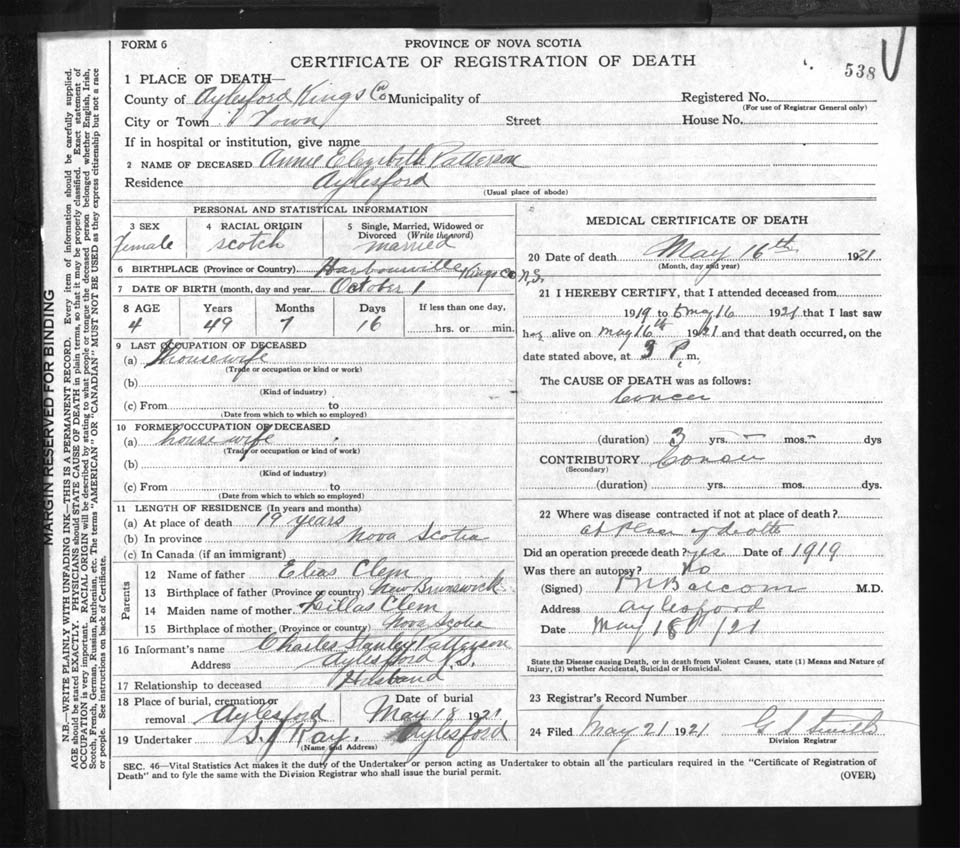 FORM 6
PROVINCE OF NOVA SCOTIA
CERTIFICATE OF REGISTRATION OF DEATH
538
1 PLACE OF DEATH—
County of Aylesford Kings Co Municipality of
Registered No.
(For use of Registrar General only)
City or Town Town Street House No.
If in hospital or institution, give name
2 NAME OF DECEASED Annie Elizabeth Patterson
Residence Aylesford
(Usual place of abode)
PERSONAL AND STATISTICAL INFORMATION
3 SEX 4 RACIAL ORIGIN 5 Single, Married, Widowed or
Divorced (Write the word)
Female scotch married
6 BIRTHPLACE (Province or Country) Harbourville Kings Co N.S.
7 DATE OF BIRTH (month, day and year) October 1
8 AGE Years Months Days If less than one day,
4 49 7 16 hrs. or min.
9 LAST OCCUPATION OF DECEASED
(a) housewife
(Trade or occupation or kind or work)
(b)
(Kind of industry)
(c) From to
(Date from which to which so employed)
10 FORMER OCCUPATION OF DECEASED
(a) house wife
(Trade or occupation or kind of work)
(b)
(Kind of industry)
(c) From to
(Date from which to which so employed)
11 LENGTH OF RESIDENCE (In years and months)
(a) At place of death 19 years
(b) In province Nova Scotia
(c) In Canada (if an immigrant)
Parents
12 Name of father Elias Clem
13 Birthplace of father (Province or country) New Brunswick
14 Maiden name of mother Clem
15 Birthplace of mother (Province or country) Nova Scotia
16 Informant's name Charles Stanley Patterson
Address Aylesford
17 Relationship to deceased Husband
18 Place of burial, cremation or Date of burial
removal Aylesford May 18 1921
19 Undertaker Ray. Aylesford
(Name and Address)
MEDICAL CERTIFICATE OF DEATH
20 Date of death May 16th 1921
(Month, day and year)
21 I HEREBY CERTIFY, that I attended deceased from
1919 to May 16 1921 that I last saw
her alive on may 16th 1921 and that death occurred, on the
date stated above, at 3 P m.
The CAUSE OF DEATH was as follows:
Cancer
(duration) 3 yrs. – mos. – dys
CONTRIBUTORY Cancer
(Secondary)
(duration) yrs. mos. dys.
22 Where was disease contracted if not at place of death?
at place of death
Did an operation precede death? yes Date of 1919
Was there an autopsy? No
(Signed) Balcom M.D.
Address aylesford
Date May 18 /21
State the Disease causing Death, or in death from Violent Causes, state (1) Means and Nature of
Injury, (2) whether Accidental, Suicidal or Homicidal.
23 Registrar's Record Number
24 Filed May 21 1921
Division Registrar
SEC. 46—Vital Statistics Act makes it the duty of the Undertaker or person acting as Undertaker to obtain all the particulars required in the "Certificate of Registration of
Death" and to fyle the same with the Division Registrar who shall issue the burial permit.
(OVER)
MARGIN RESERVED FOR BINDING
N.B.—WRITE PLAINLY WITH UNFADING INK—THIS IS A PERMANENT RECORD. Every item of information should be carefully supplied.
AGE should be stated EXACTLY. PHYSICIANS should STATE CAUSE OF DEATH in plain terms, so that it may be properly classified. Exact statement of
OCCUPATION is very important. RACIAL ORIGIN will be described by stating to what people or tongue the deceased person belonged whether English, Irish,
Scotch, French, German, Russian, Ruthenian, etc. The terms "AMERICAN" OR "CANADIAN" MUST NOT BE USED as they express citizenship but not a race
or people. See instructions on back of Certificate.